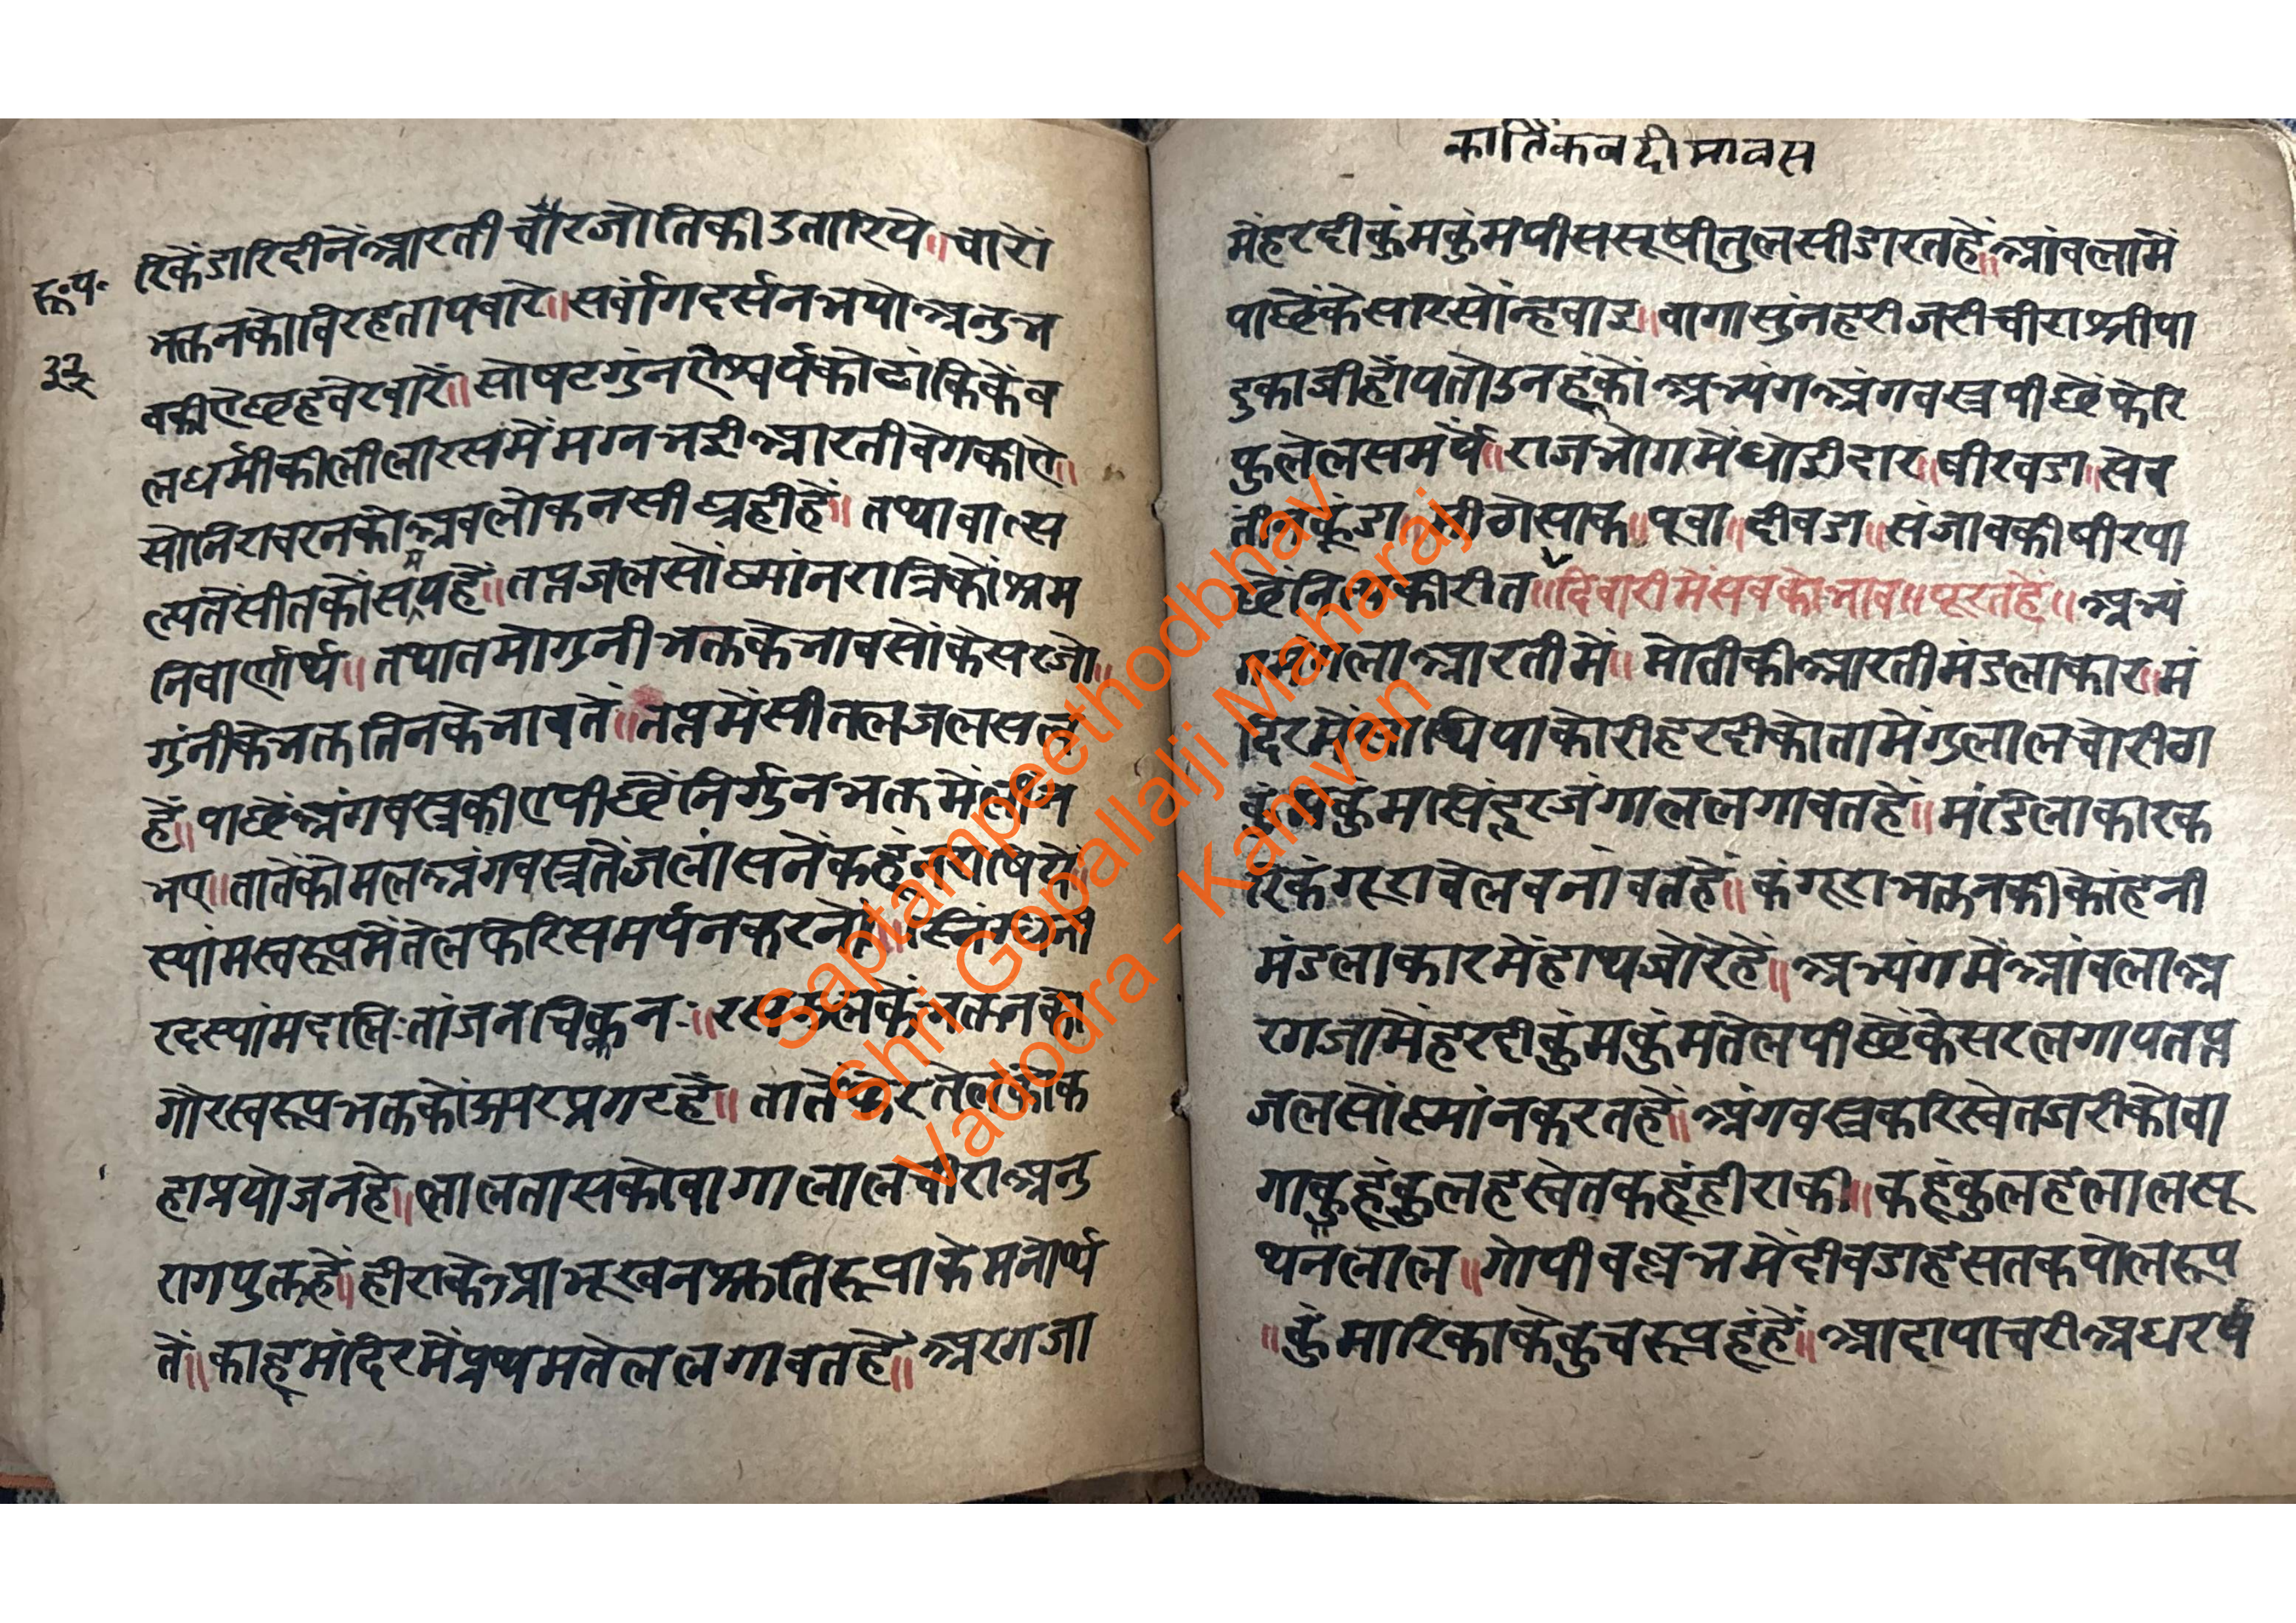 रू॰प॰
३३
रिकेंडारिदीनेंआरतीचौरजोतिकीउतारिये॥चारों
भक्तनकोविरहतापबारे॥सर्वांगदर्सनभयोअनुभ
वकीऐछहवेरवारें॥सोषटगुंनऐश्वर्यकोढांकिकेंव
लधर्मीकीलीलारसमेंमग्नभईआरतीवेगकीऐ॥
सोनिरावरनकोअवलोकनसीघ्रहीहें॥तथावात्स
ल्यतेंसीतकोसमयहें॥तप्तजलसोंस्नांनरात्रिकोश्रम
निवार्णार्थ॥तथातमोगुनीभक्तकेभावसोंकेसरजो॥
गुंनीकेभक्ततिनकेभावतें॥तप्तमेंसीतलजलसत्व
हें॥पाछेंअंगवस्त्रकीऐपीछेंनिर्गुनभक्तमेंलीन
भए॥तातेंकोमलअंगवस्त्रतेंजलांस
स्यांमस्वरूपमेंतेलफेरिसमर्पनकरनों॥स्निग्धनी
रदस्यांमदालि:तांजनचिक्कन:॥
गौरस्वरूपभक्तकोऊपरप्रगटहें॥
हाप्रयोजनहे॥लालतासकोवागालालचीराअनु
रागयुक्तहें॥हीराकेआभूखनश्रुतिरूपाकेमनोर्थ
तें॥काहूमंदिरमेंप्रथमतेललगावतहें॥अरगजा
कार्तिकवदीमावस
मेंहरदीकुंमकुंमपीससूषीतुलसीडारतहें॥आंवलामें
पाछेंकेसरिसोंन्हवाइ॥वागासुंनहरीजरीचीराश्रीपा
दुकाजीहोंयतोउनहूंकोंअभ्यंगअंगवस्त्रपीछेंफेरि
फुलेलसमर्पे॥राजभोगमेंधोईदार॥षीरवडा॥सेव
मीठोसाक॥पूवा॥दीवडा॥संजावकीषीरपा
कीरीत॥दिवारीमेंसबकोभाव॥पूरतहें॥अभ्यं
आरतीमें॥मोतीकीआरतीमंडलाकार॥मं
दिरमें पाकोरीहरदीकोतामेंगुलालचोरीठा
कुंमकुंमसिंदूरजंगाललगावतहें॥मंडिलाकारक
रिकेंगूरावेलवनांवतहें॥कंगूराभक्तनकीकोंहनी
मंडलाकारमेंहाथजोरेंहें॥अभ्यंगमेंआंवलाअ
रगजामेंहरदीकुंमकुंमतेलपीछेंकेसरलगायतप्त
जलसोंस्नांनकरतहें॥अंगवस्त्रकरिस्वेतजरीकोवा
गाकुहूंकुलहस्वेतकहूंहीराकी॥कहूंकुलहलालसू
थनलाल॥गोपीवल्लभमेंदीवडाहसतकपोलरूप
॥कुंमारिकाकेकुचरूपहूंहें॥आदापाचरीअधरर्ष
Saptampeethodbhav
Shri Gopallalji Maharaj
Vadodra - Kamvan